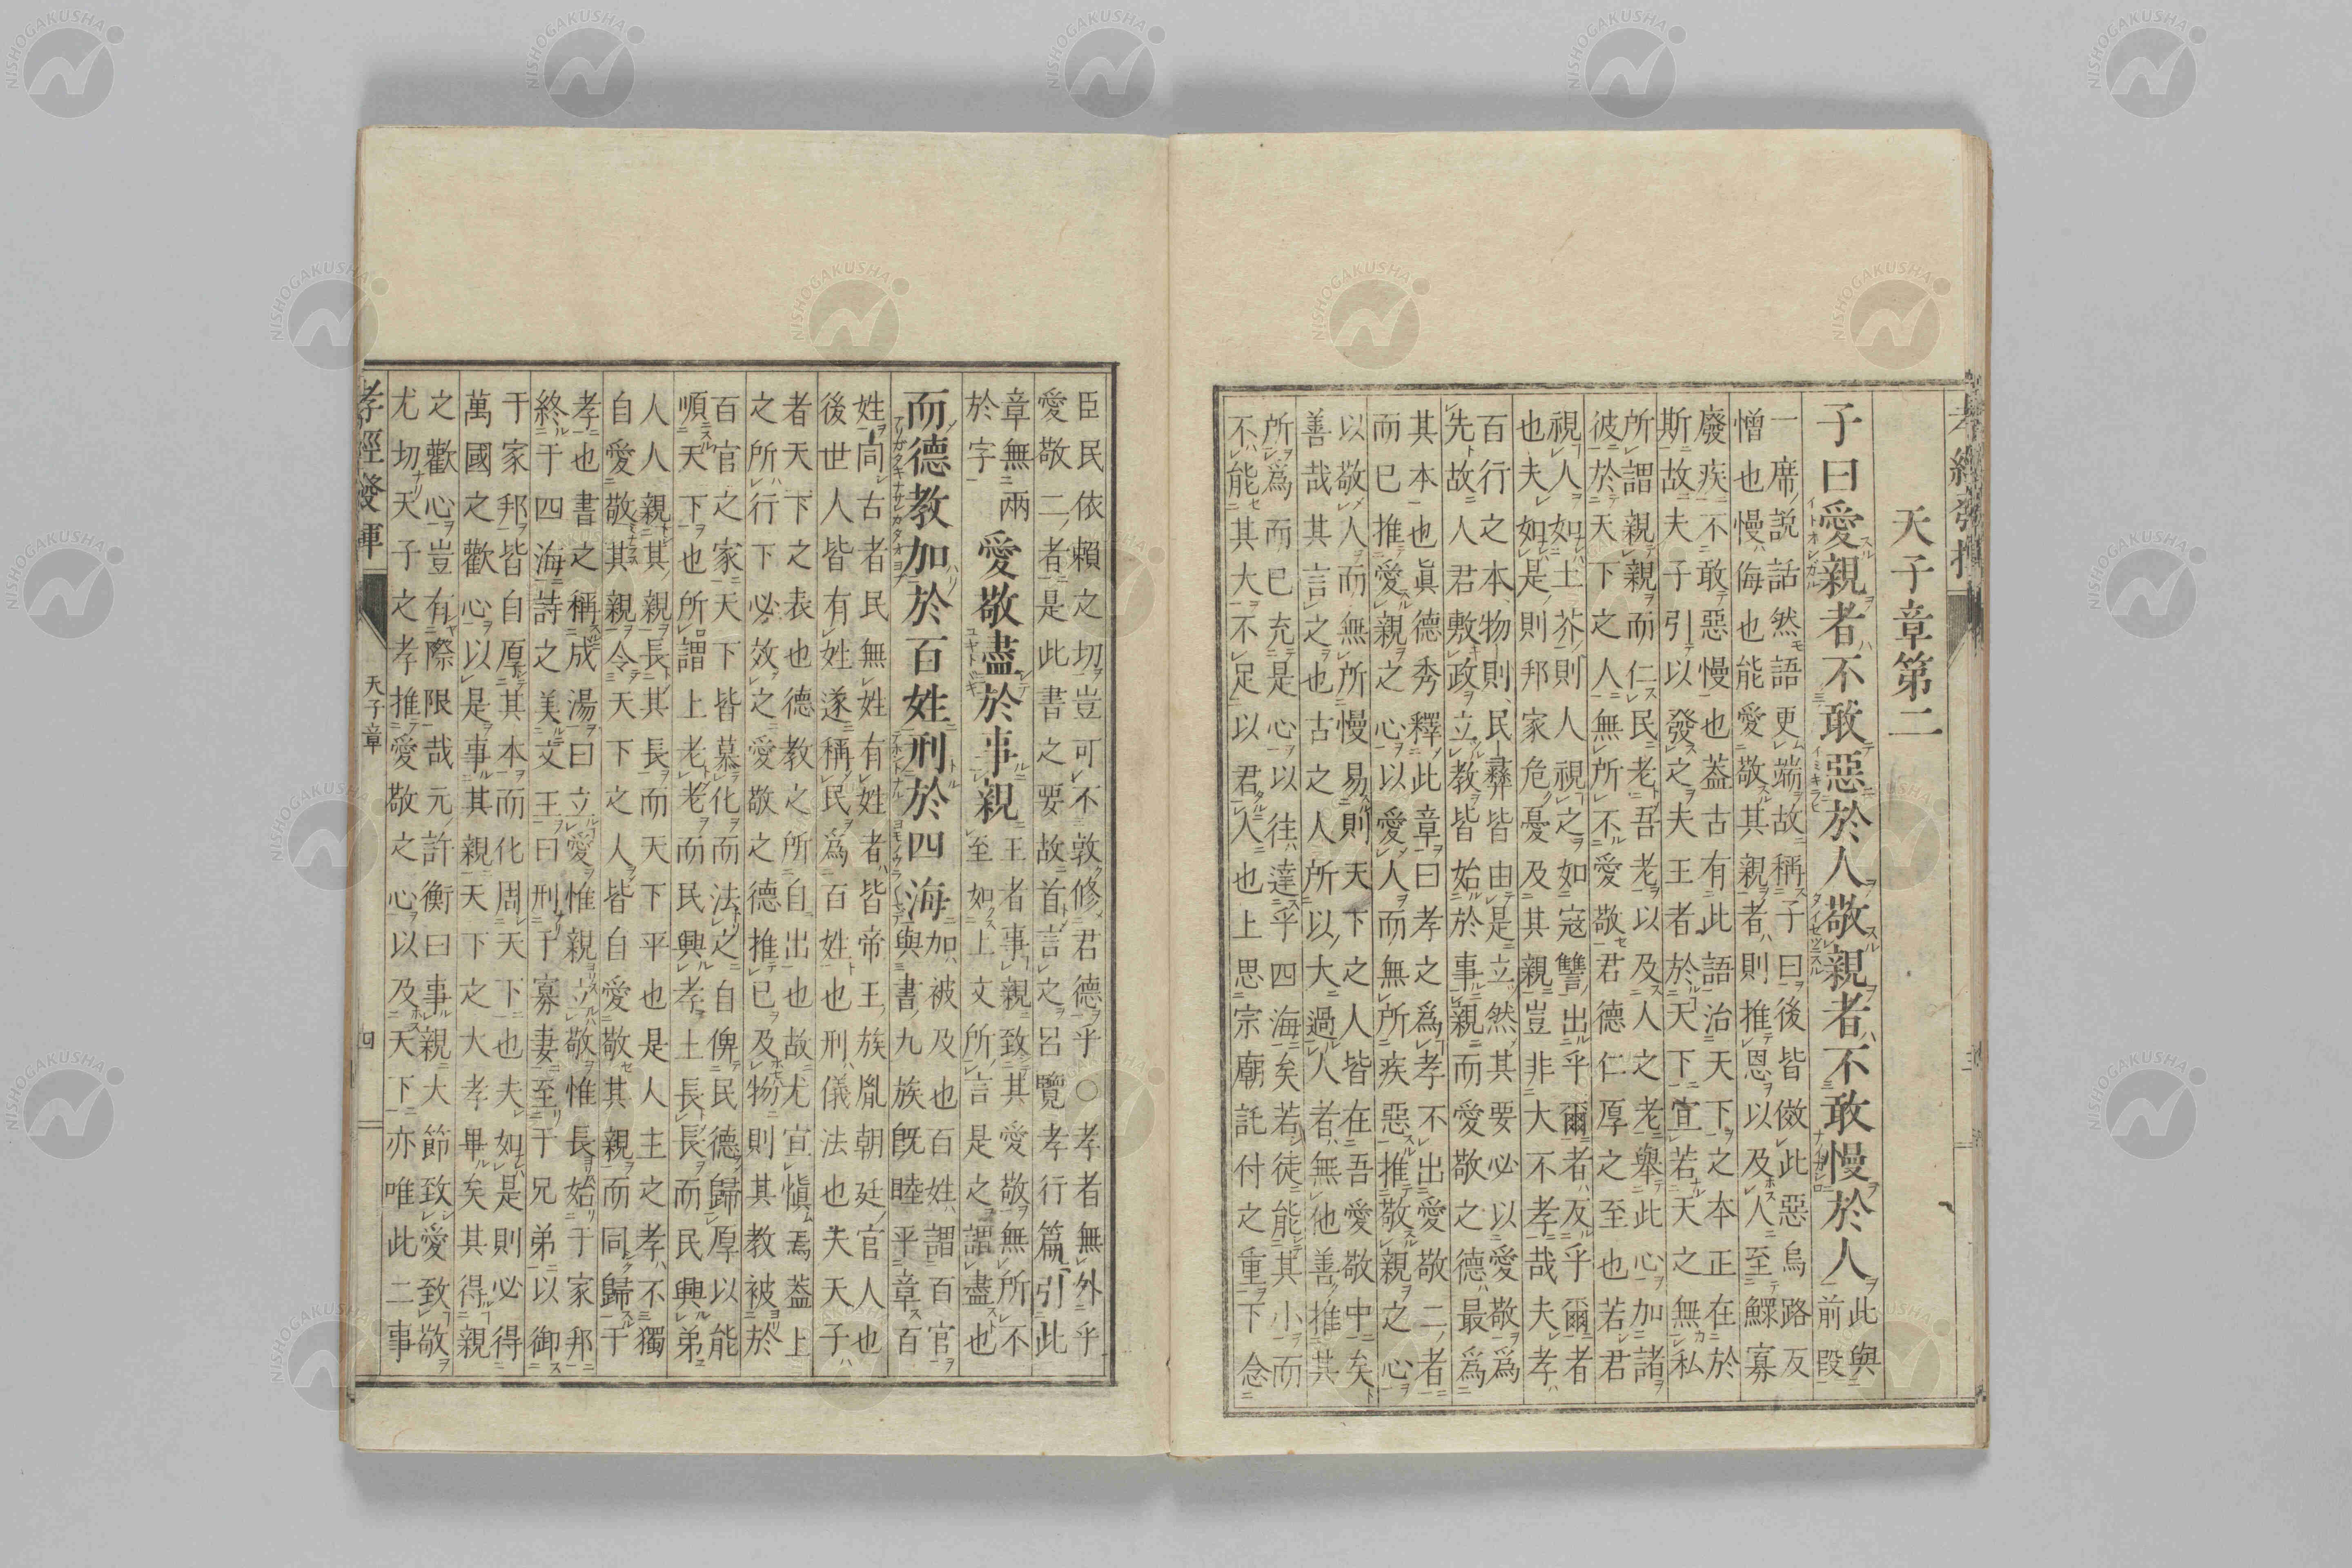 天子章第二
子曰愛親者不敢惡於人敬親者不敢慢於人
此與
前段
一席說話然語更端故稱子曰後皆倣此惡烏路反
憎也慢侮也能愛敬其親者則推恩以及人至鰥寡
廢疾不敢惡慢也葢古有此語治天下之本正在於
斯故夫子引以發之夫王者於天下宜若天之無私
所謂親親而仁民老吾老以及人之老舉此心加諸
彼於天下之人無所不愛敬君德仁厚之至也若君
視人如土芥則人視之如寇讐出乎爾者反乎爾者
也夫如是則邦家危憂及其親豈非大不孝哉夫孝
百行之本物則民彝皆由是立然其要必以愛敬爲
先故人君敷政立教皆始於事親而愛敬之德最爲
其本也眞德秀釋此章曰孝之爲孝不出愛敬二者
而已推愛親之心以愛人而無所疾惡推敬親之心
以敬人而無所慢易則天下之人皆在吾愛敬中矣
善哉其言之也古之人所以大過人者無他善推其
所爲而已充是心以往達乎四海矣若徒能其小而
不能其大不足以君人也上思宗廟託付之重下念
臣民依賴之切豈可不敦修君德乎○孝者無外乎
愛敬二者是此書之要故首言之呂覽孝行篇引此
章無兩
於字
愛敬盡於事親
王者事親致其愛敬無所不
至如上文所言是之謂盡也
而德教加於百姓刑於四海
加被及也百姓謂百官
與書九族既睦平章百
姓同古者民無姓有姓者皆帝王族胤朝廷官人也
後世人皆有姓遂稱民爲百姓也刑儀法也夫天子
者天下之表也德教之所自出也故尤宜愼焉葢上
之所行下必效之愛敬之德推已及物則其教被於
百官之家天下皆慕化而法之自俾民德歸厚以能
順天下也所謂上老老而民興孝上長長而民興弟
人人親其親長其長而天下平也是人主之孝不獨
自愛敬其親令天下之人皆自愛敬其親而同歸于
孝也書之稱成湯曰立愛惟親立敬惟長始于家邦
終于四海詩之美文王曰刑于寡妻至于兄弟以御
于家邦皆自厚其本而化周天下也夫如是則必得
萬國之歡心以是事其親天下之大孝畢矣其得親
之歡心豈有際限哉元許衡曰事親大節致愛致敬
尤切天子之孝推愛敬之心以及天下亦唯此二事
孝經發揮 天子章 四
NISHOGAKUSHA